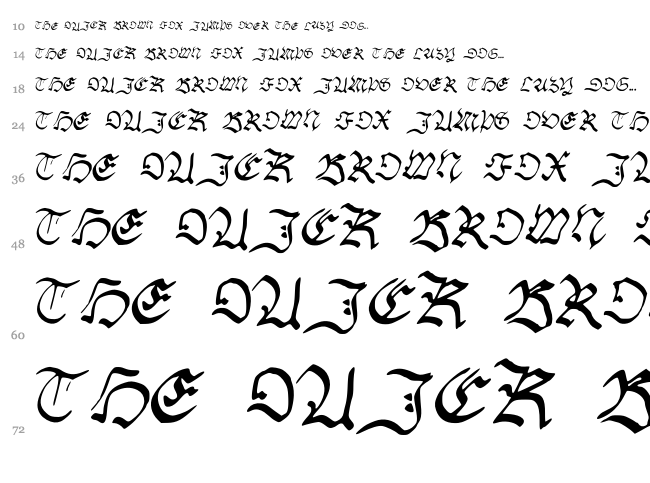 10 THE QUICK BROWN FOX JUMPS OVER THE LAZY DOG...
14 THE QUICK BROWN FOX JUMPS OVER THE LAZY DOG...
18 THE QUICK BROWN FOX JUMPS OVER THE LAZY DOG...
24 THE QUICK BROWN FOX JUMPS OVER TH
36 THE QUICK BROWN FOX JU
48 THE QUICK BROWN
60 THE QUICK BRO
72 THE QUICK B